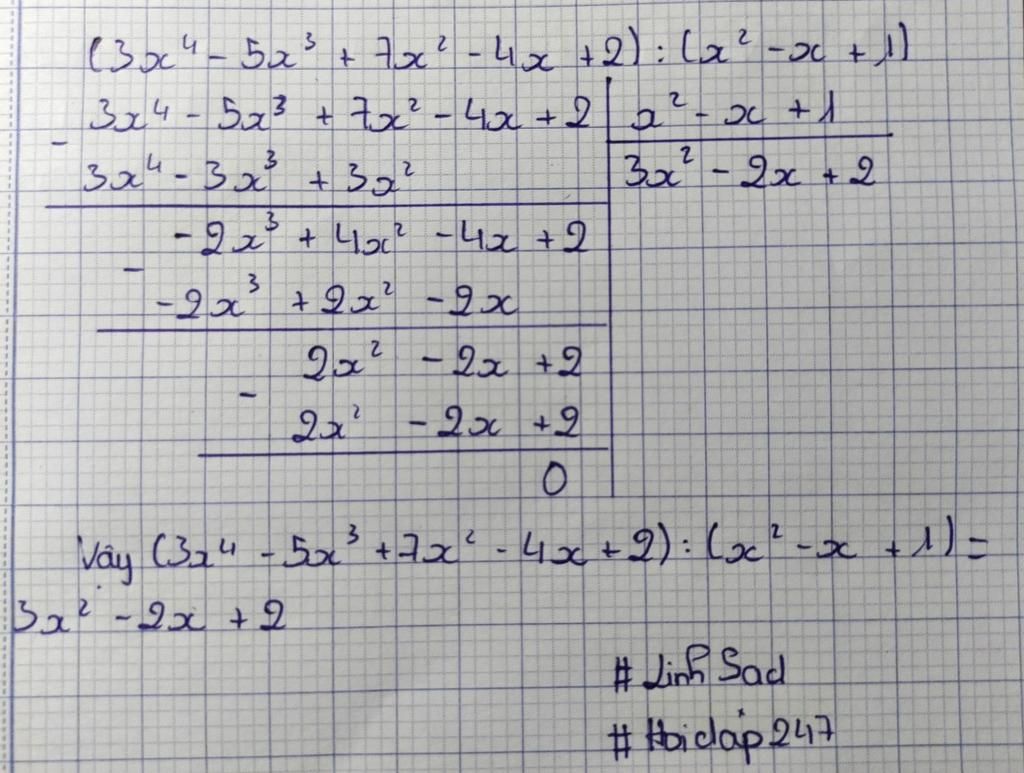 (3x⁴ - 5x³ + 7x² - 4x + 2) : (x² - x + 1)
3x⁴ - 5x³ + 7x² - 4x + 2 | x² - x + 1
-
3x⁴ - 3x³ + 3x² | 3x² - 2x + 2
-2x³ + 4x² - 4x + 2
-
-2x³ + 2x² - 2x
2x² - 2x + 2
-
2x² - 2x + 2
0
Vậy (3x⁴ - 5x³ + 7x² - 4x + 2) : (x² - x + 1) =
3x² - 2x + 2
# Linh Sad
# Hoidap247